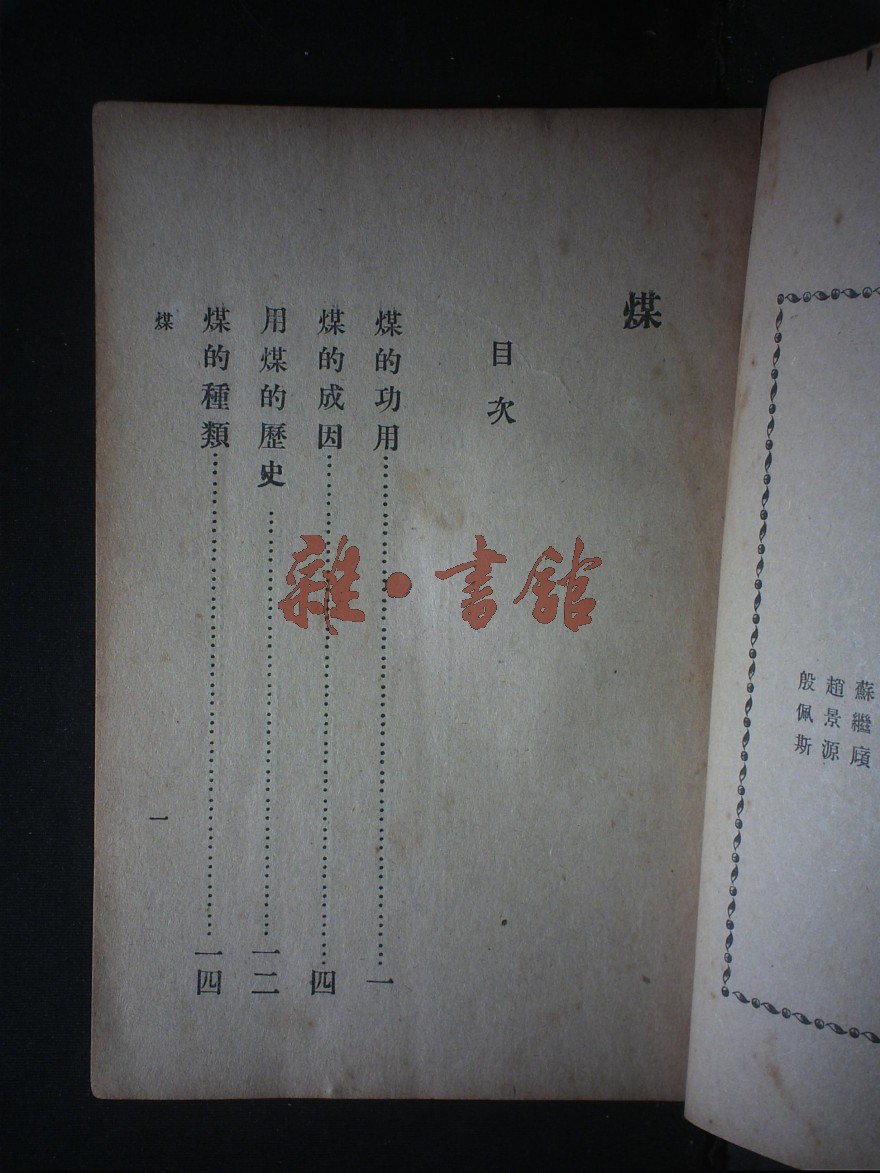 蘇繼廎
趙景源
殷佩斯
煤
目次
煤的功用……一
煤的成因……四
用煤的歷史……一二
煤的種類……一四
煤
一
雜·書館